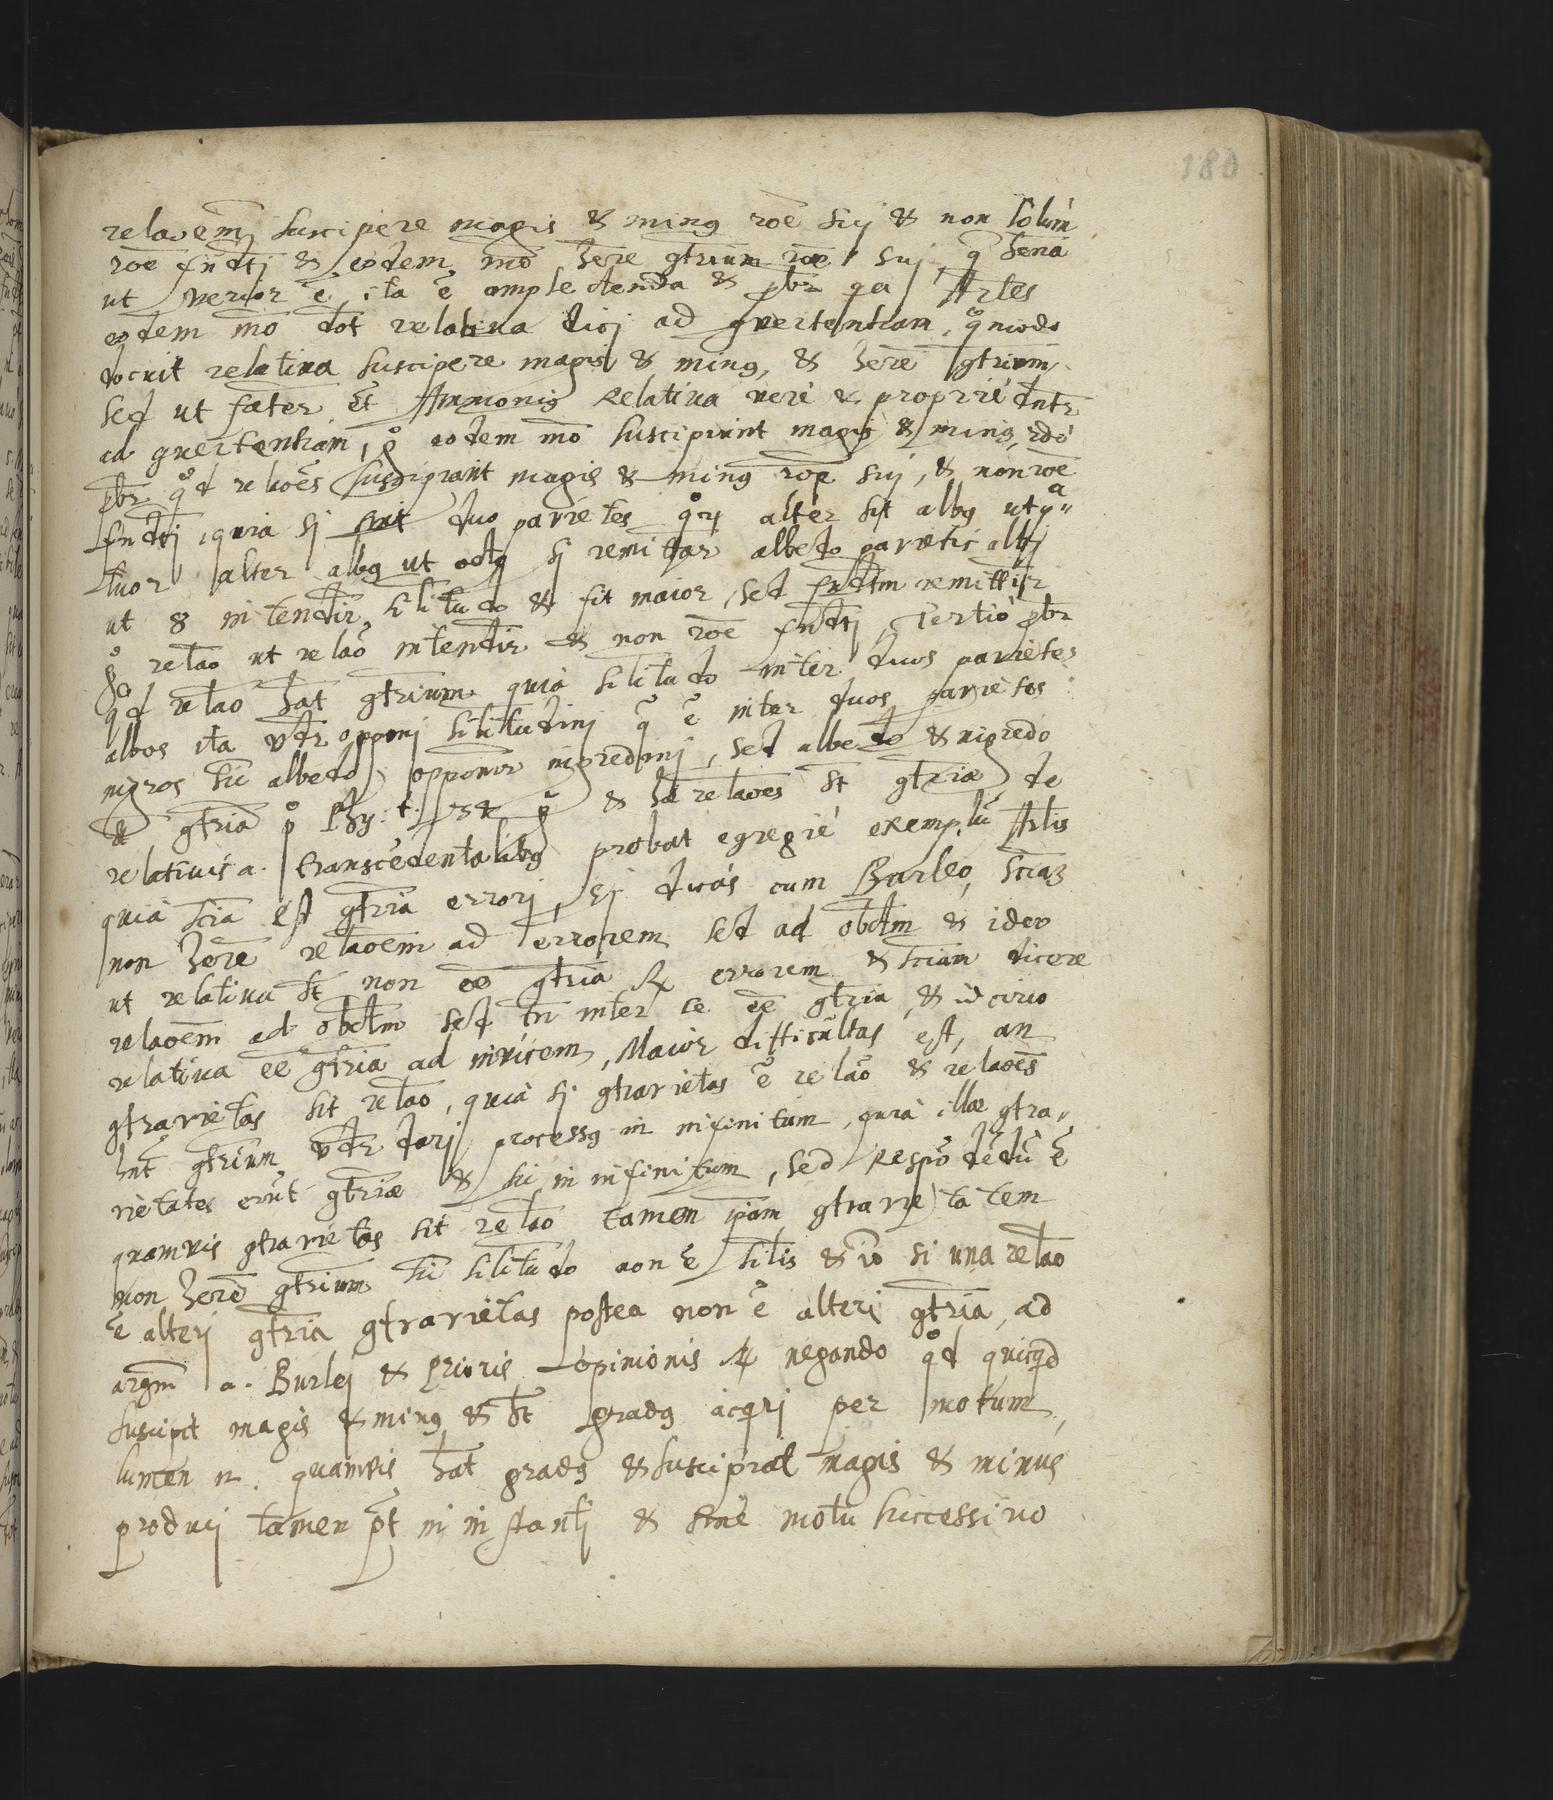 180
relaōem suscipere magis & minꝯ rōe sui & non solum
rōe fndti & eodem mō hēre ꝯtrium rōe sui, q̄ sena
ut verior ē, ita ē amplectenda & pbr qa Artes
eodem mō dōt relativa dici ad ꝯvertentiam, qͦmodo
docuit relativa suscipere magis & minꝯ, & hēre ꝯtrium
sed ut fater et Ammoniꝯ Relativa verè & propriè dntr
ad ꝯvertentiam, gͦ eodem mō suscipiunt magis & minꝯ, 2dò
pbr qͦd relaōes suscipiant magis & minꝯ rōe sui, & non rōe
fndti, quia si sint duo parietes qͦꝝ alter sit albꝯ ut qᵃ
tuor alter albꝯ ut octꝯ si remittatr albedo parietis albi
ut 8 intenditr similitudo & fit maior, sed fndtm remittitr
gͦ relāo ut relāo intenditr & non rōe fndti, Tertiò pbr
qͦd relāo hāt ꝯtrium quia silitudo inter duos parietes
albos ita vdtr opponi silitudini q̄ ē inter duos parietes
nigros sic albedo opponitr nigredini, sed albedo & nigredo
st ꝯtria pͦ Phy: t. 54 gͦ & hae relaōes st ꝯtriae, de
relativis a. transcēdentalibꝯ probat egregiè exemplū Artis
quia scīa est ꝯtria errori, Si dicas cum Burleo, sciaꝫ
non hēre relaōem ad errorem sed ad obctm & ideo
ut relativa st non eē ꝯtria R errorem & sciam dicere
relaōem ad obctm sed tn inter se eē ꝯtria, & idcirco
relativa eē ꝯtria ad invicem, Maior difficultas est, an
ꝯtrarietas sit relāo, quia si ꝯtrarietas ē relāo & relaōes
hnt ꝯtrium, vdtr dari processꝯ in infinitum, quia illae ꝯtra,,
rietates erūt ꝯtriae & sic in infinitum, sed Respōdēdū ē
quamvis ꝯtrarietas sit relāo tamen ipam ꝯtrarietatem
non hēre ꝯtrium sic silitudo non ē silis & iō si una relāo
ē alteri ꝯtria ꝯtrarietas postea non ē alteri ꝯtria, ad
argm̄ a. Burlei & Prioris opinionis R negando qͦd quicqd
suscipit magis & minꝯ & ht gradꝯ acqri per motum,
lumen n. quamvis hāt gradꝯ & suscipiat magis & minus
produci tamen pt in instanti & sine motu successivo